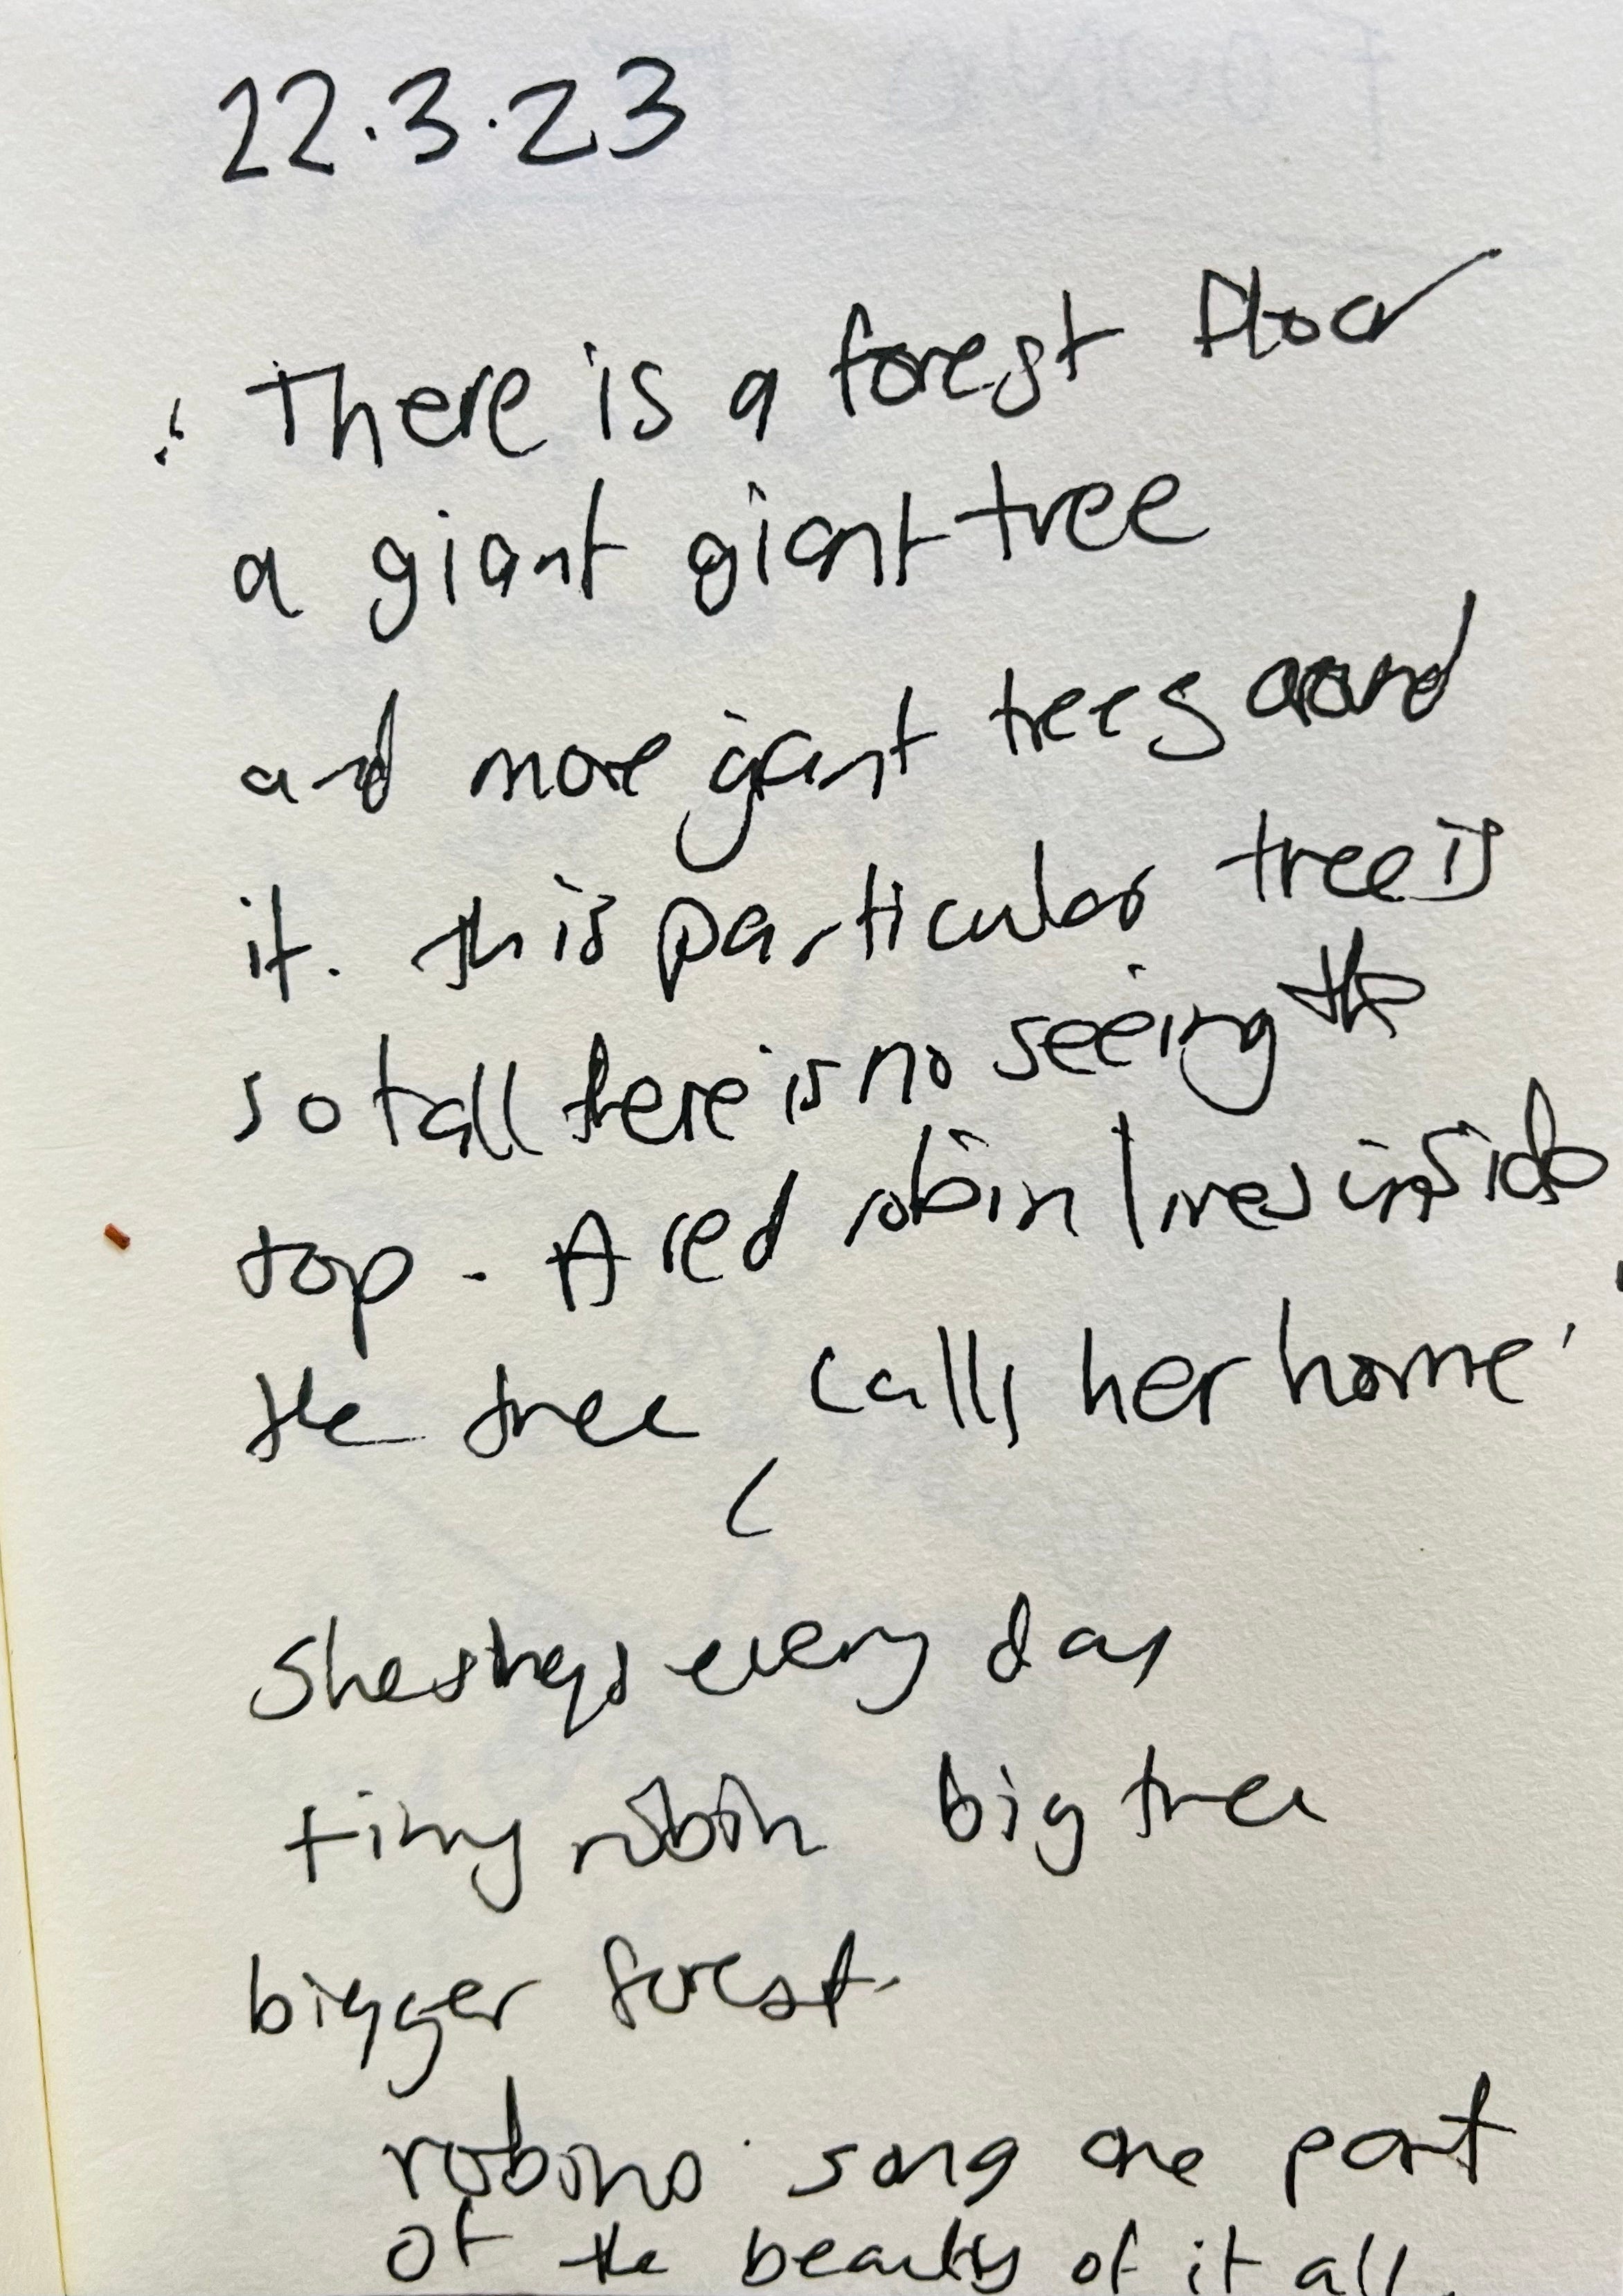 22.3.23
There is a forest floor
a giant giant tree
and more giant trees around
it. this particular tree is
so tall there is no seeing the
top. A red robin lives inside
the tree, calls her home
She every day
tiny robin big tree
bigger forest.
robins song one part
of the beauty of it all.